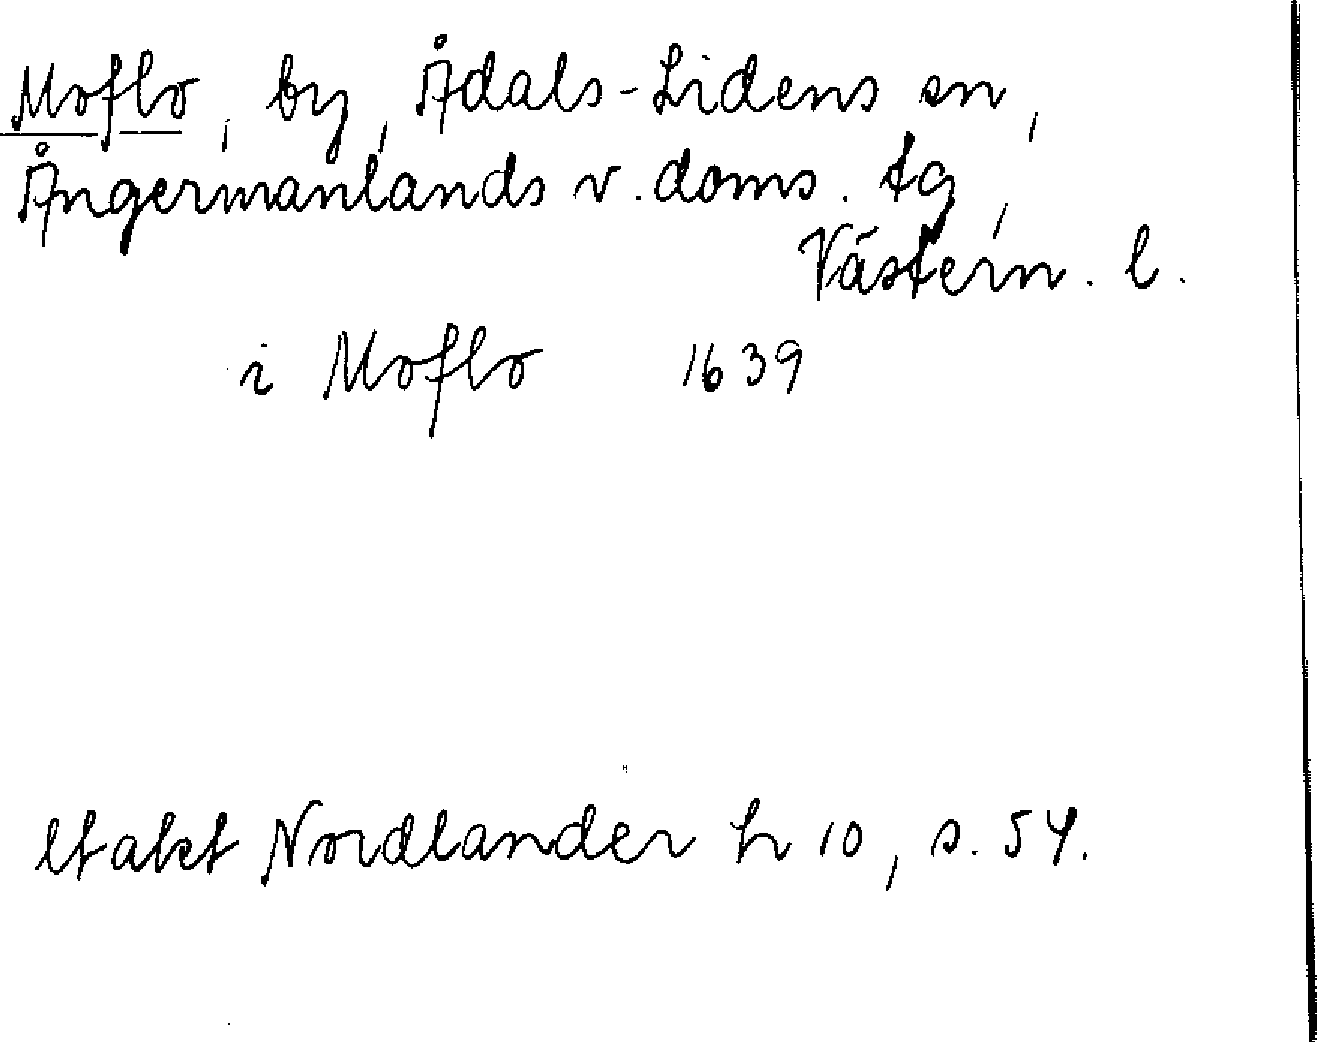 Moflo, by, Ådals-Lidens sn,
Ångermanlands v. doms. tg,
Västern. l.
i Moflo 1639
Nordlander h 10, s. 54.